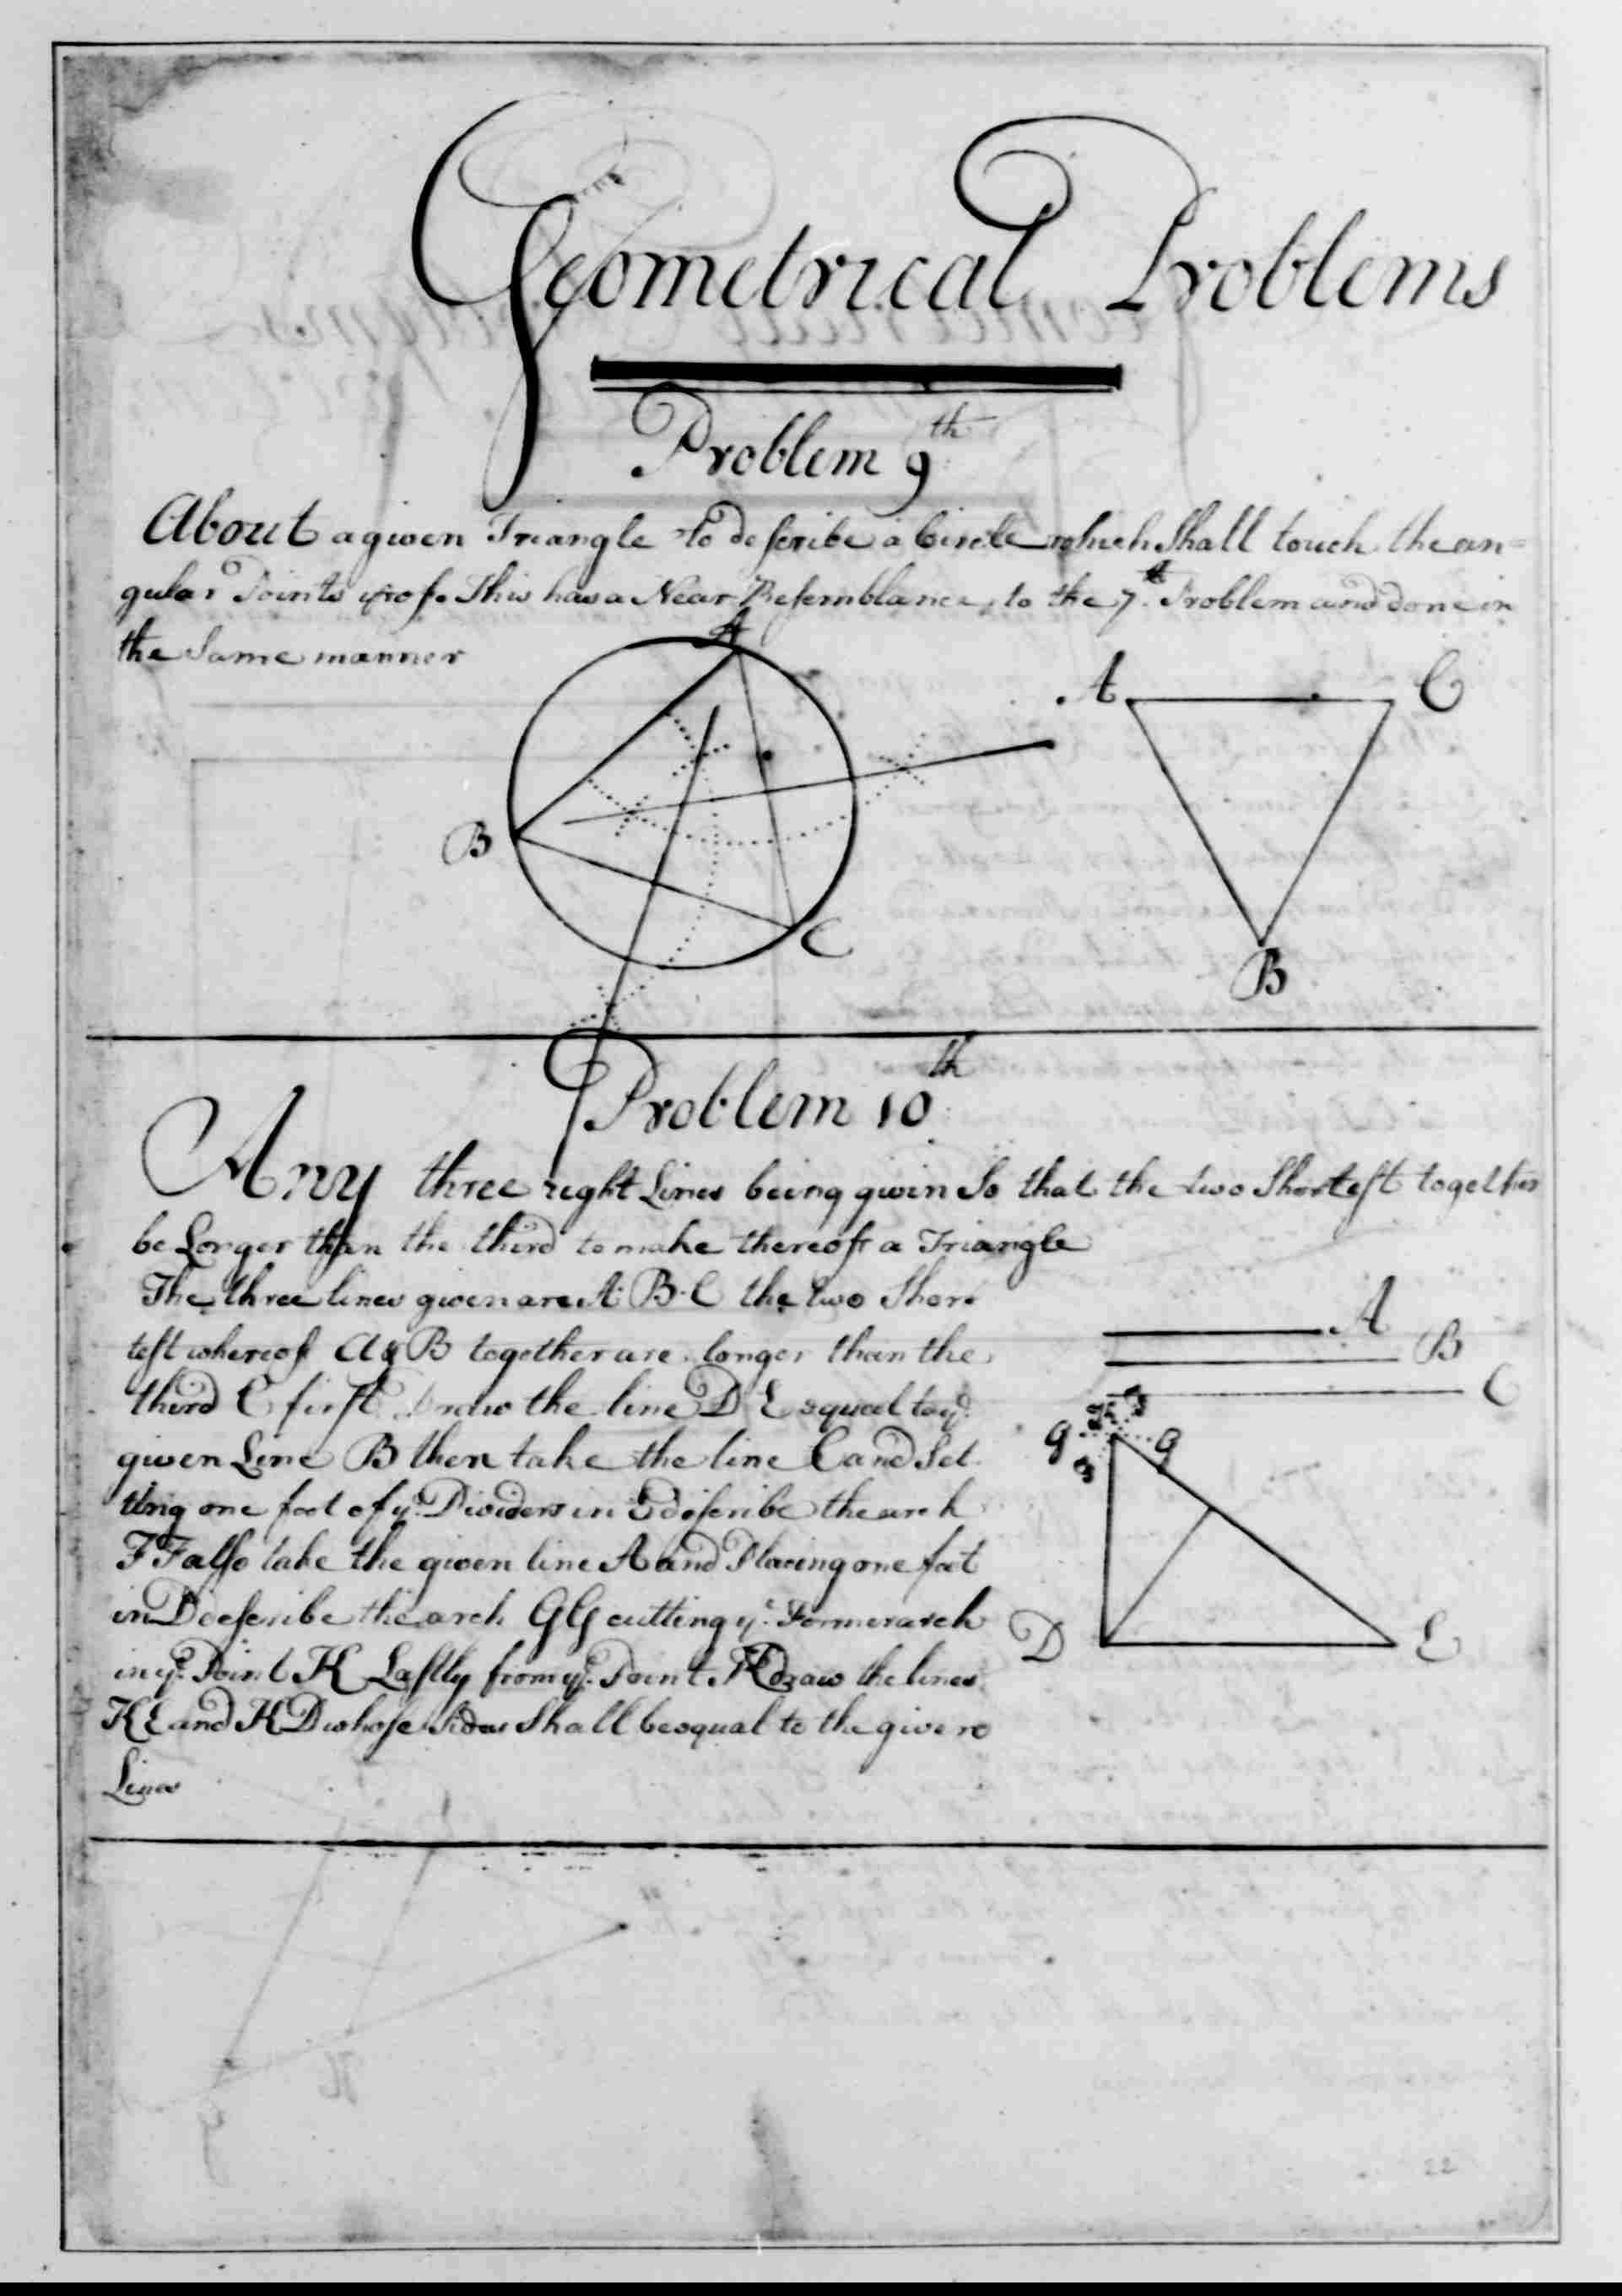 Geometrical Problems
Problem 9th
About a given Triangle to describe a Circle which Shall touch the an=
gular Points yrof. This has a Near Resemblance, to the 7th Problem and done in
the Same manner
A
B
C
A
C
B
Problem 10th
Any three right Lines being givin So that the two Shortest together
be Longer than the third to make thereof a Triangle
The three lines given are A. B. C the two Shor
test whereof A & B together are longer than the
third C first Draw the line D E equal to ye
given Line B then take the line C and Set
ting one foot of ye Dividers in E describe the arch
F F also take the given line A and Placing one foot
in D describe the arch G G cutting ye Former arch
in ye Point K Lastly from ye Point K draw the lines
K E and K D whose Sides Shall be equal to the given
Lines
A
B
C
G
G
D
E
22